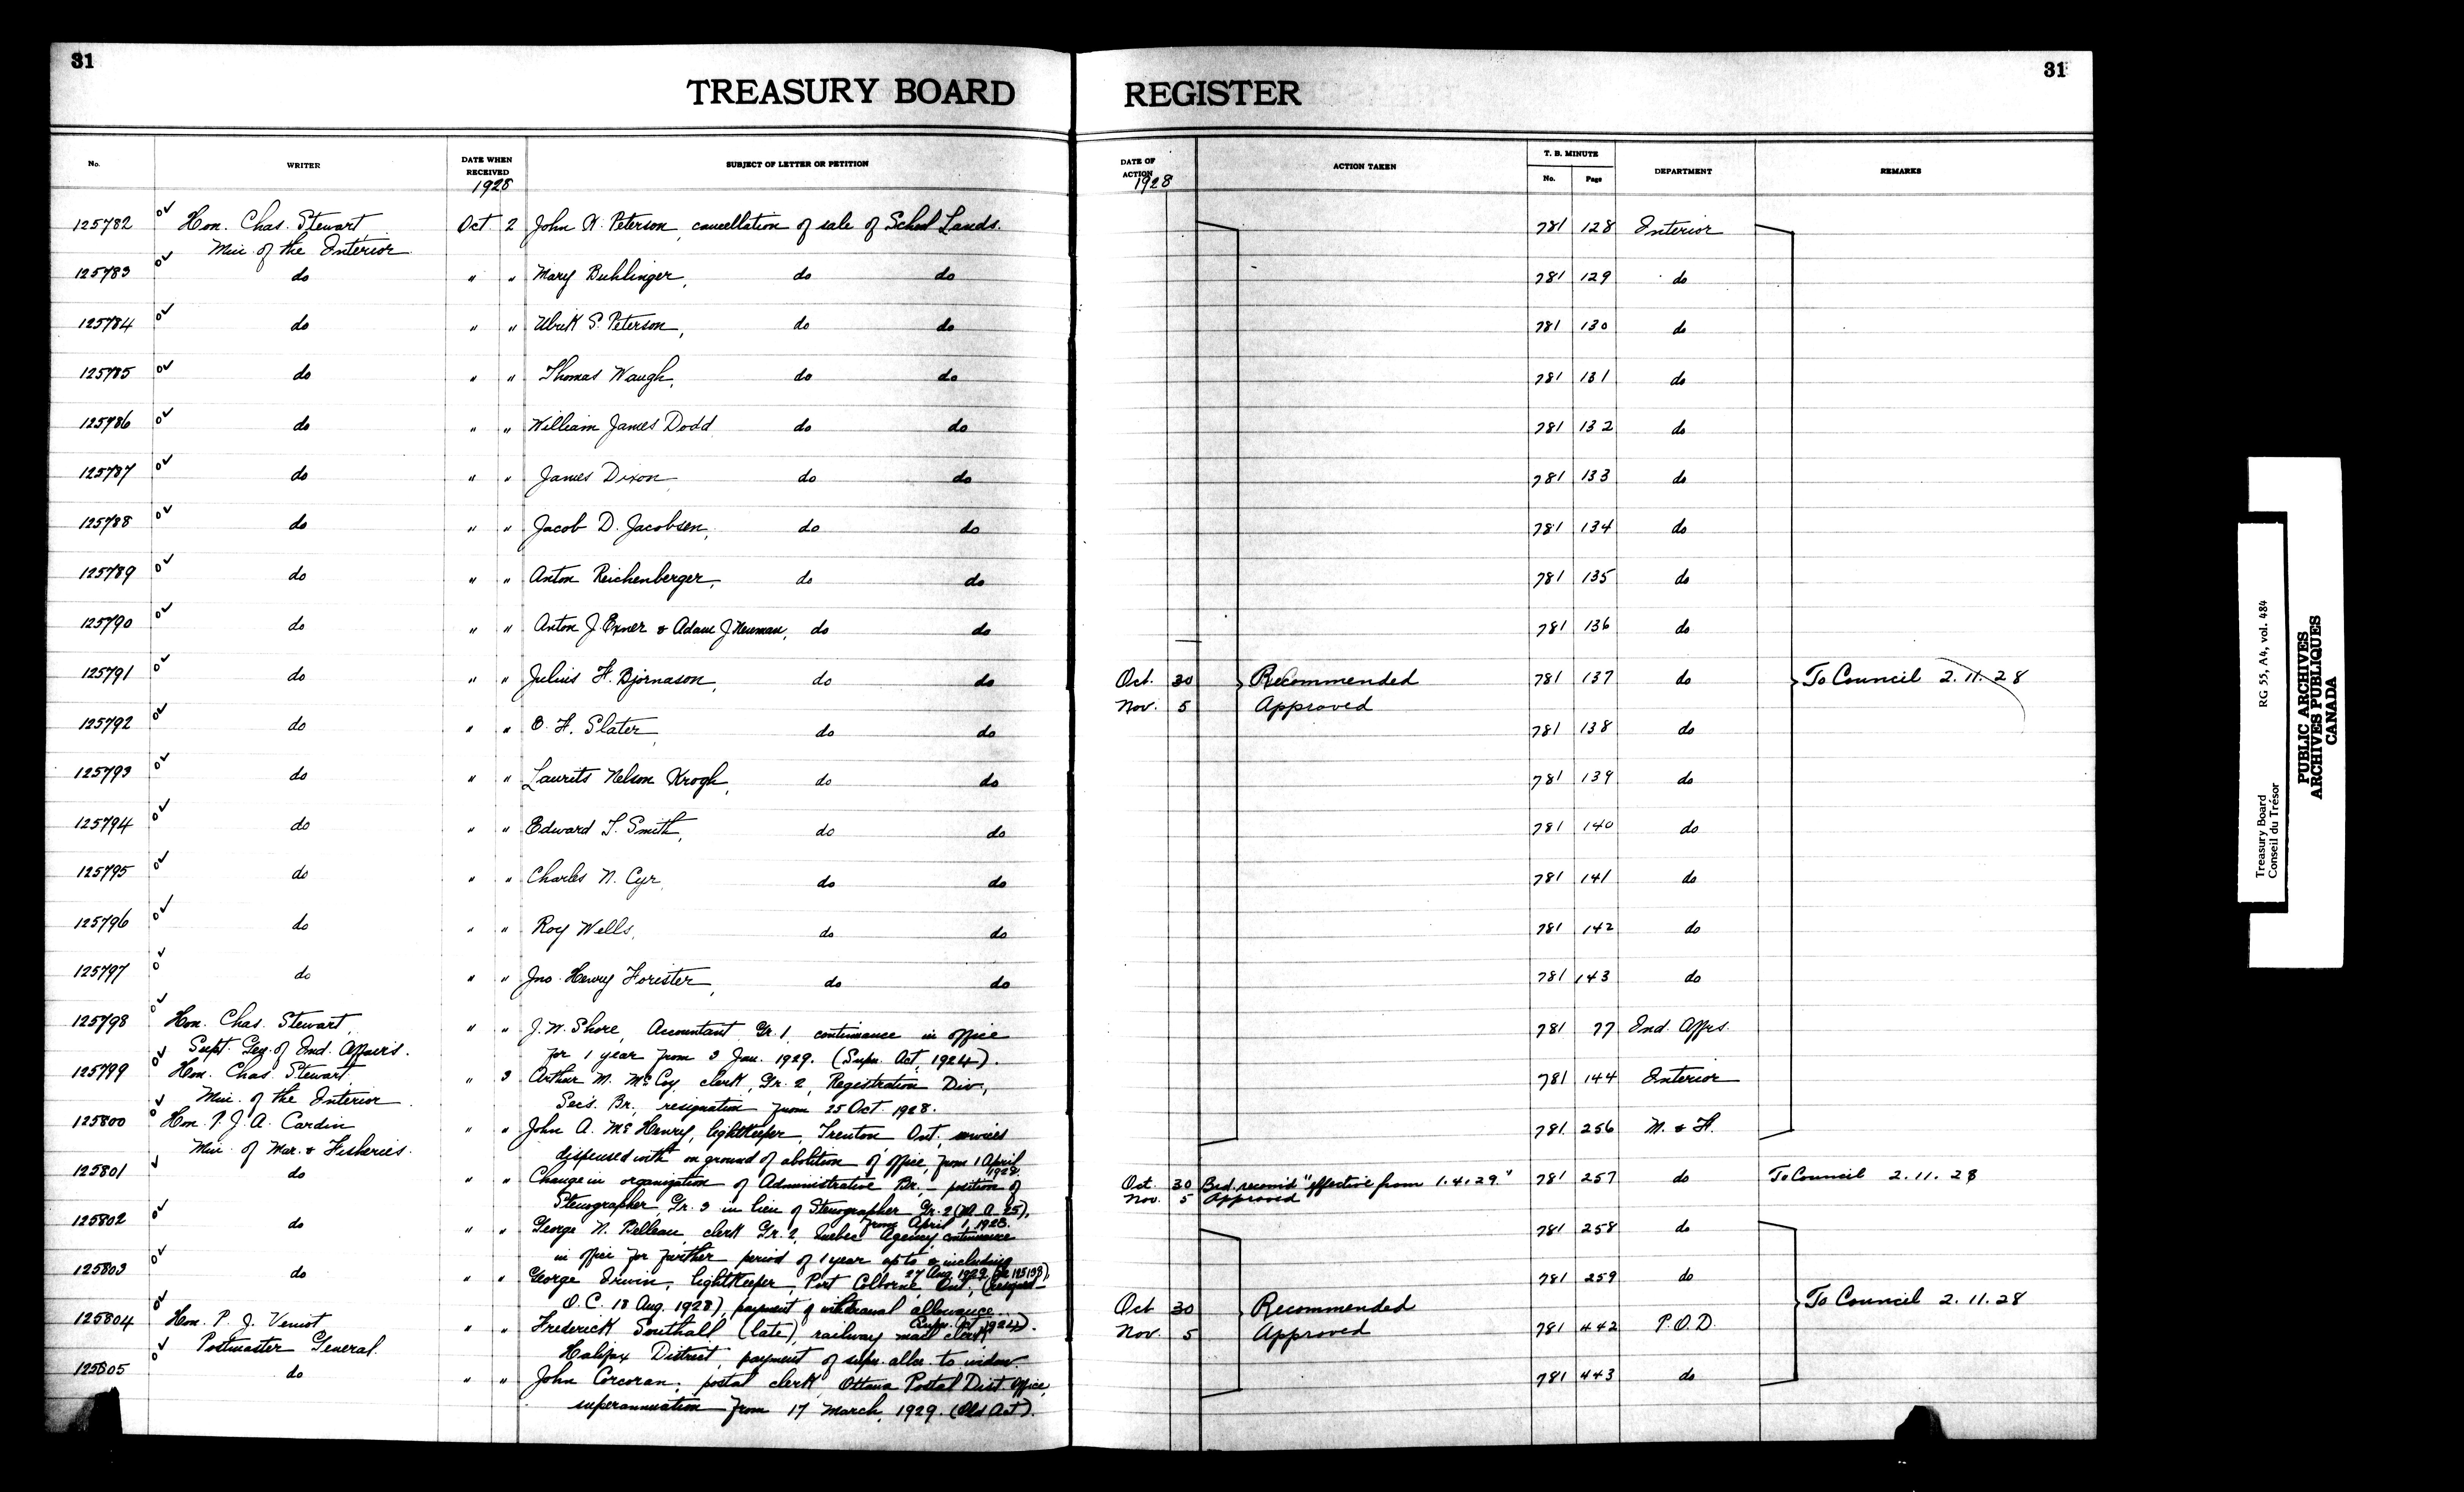 31
TREASURY BOARD REGISTER
31
No. WRITER DATE WHEN RECEIVED SUBJECT OF LETTER OR PETITION DATE OF ACTION ACTION TAKEN T. B. MINUTE No. Page DEPARTMENT REMARKS
1928 1928
125782 Hon. Chas. Stewart, Oct. 2 John K. Peterson, cancellation of sale of School Lands. 781 128 Interior
Min. of the Interior
125783 do " " Mary Buhlinger, do do 781 129 do
125784 do " " Ulrik S. Peterson, do do 781 130 do
125785 do " " Thomas Waugh, do do 781 131 do
125786 do " " William James Dodd do do 781 132 do
125787 do " " James Dixon do do 781 133 do
125788 do " " Jacob D. Jacobsen, do do 781 134 do
125789 do " " Anton Reichenberger, do do 781 135 do
125790 do " " Anton J. Exner & Adam J Neuman, do do 781 136 do
125791 do " " Julius H. Bjornason, do do Oct. 30 Recommended 781 137 do To Council 2.11.28
Nov. 5 Approved
125792 do " " O. H. Slater, do do 781 138 do
125793 do " " Laurits Nelson Krogh, do do 781 139 do
125794 do " " Edward T. Smith, do do 781 140 do
125795 do " " Charles N. Cyr, do do 781 141 do
125796 do " " Roy Wells, do do 781 142 do
125797 do " " Jno. Henry Forister, do do 781 143 do
125798 Hon. Chas. Stewart, " " J. W. Shore, Accountant Gr. 1, continuance in office 781 77 Ind. Affrs.
Supt. Gen. of Ind. Affairs. for 1 year from 3 Jan. 1929. (Supn. Act, 1924).
125799 Hon. Chas. Stewart, " 3 Arthur M. McCoy, clerk, Gr. 2, Registration Div., 781 144 Interior
Min. of the Interior Sec's. Br., resignation from 25 Oct. 1928.
125800 Hon. P. J. A. Cardin " " John A. McHenry, lightkeeper, Trenton Ont., services 781 256 M. & F.
Min. of Mar. & Fisheries. dispensed with on ground of abolition of office, from 1 April 1928.
125801 do " " Change in organization of Administrative Br. – position of Oct. 30 Brd. recom'd "effective from 1.4.29." 781 257 do To Council 2.11.28
Stenographer, Gr. 3 in lieu of Stenographer Gr. 2 from April 1, 1928. Nov. 5 Approved
125802 do " " George N. Belleau, clerk Gr. 2, Quebec Agency, continuance 781 258 do
in office for further period of 1 year up to & including 27 Aug. 1929
125803 do " " George Irwin, lightkeeper, Port Colborne, Ont., (resigned 781 259 do
O.C. 18 Aug. 1928), payment of withdrawal allowance. (Supn. Act 1924). Oct 30 Recommended To Council 2.11.28
125804 Hon. P. J. Veniot " " Frederick Southall (late), railway mail clerk, Nov. 5 Approved 781 442 P.O.D.
Postmaster General. Halifax District, payment of supn. allce. to widow.
125805 do " " John Corcoran, postal clerk, Ottawa Postal Dist. Office, 781 443 do
superannuation from 17 March, 1929. (Old Act).
Treasury Board RG 55, A4, vol. 484
Conseil du Trésor
PUBLIC ARCHIVES
ARCHIVES PUBLIQUES
CANADA